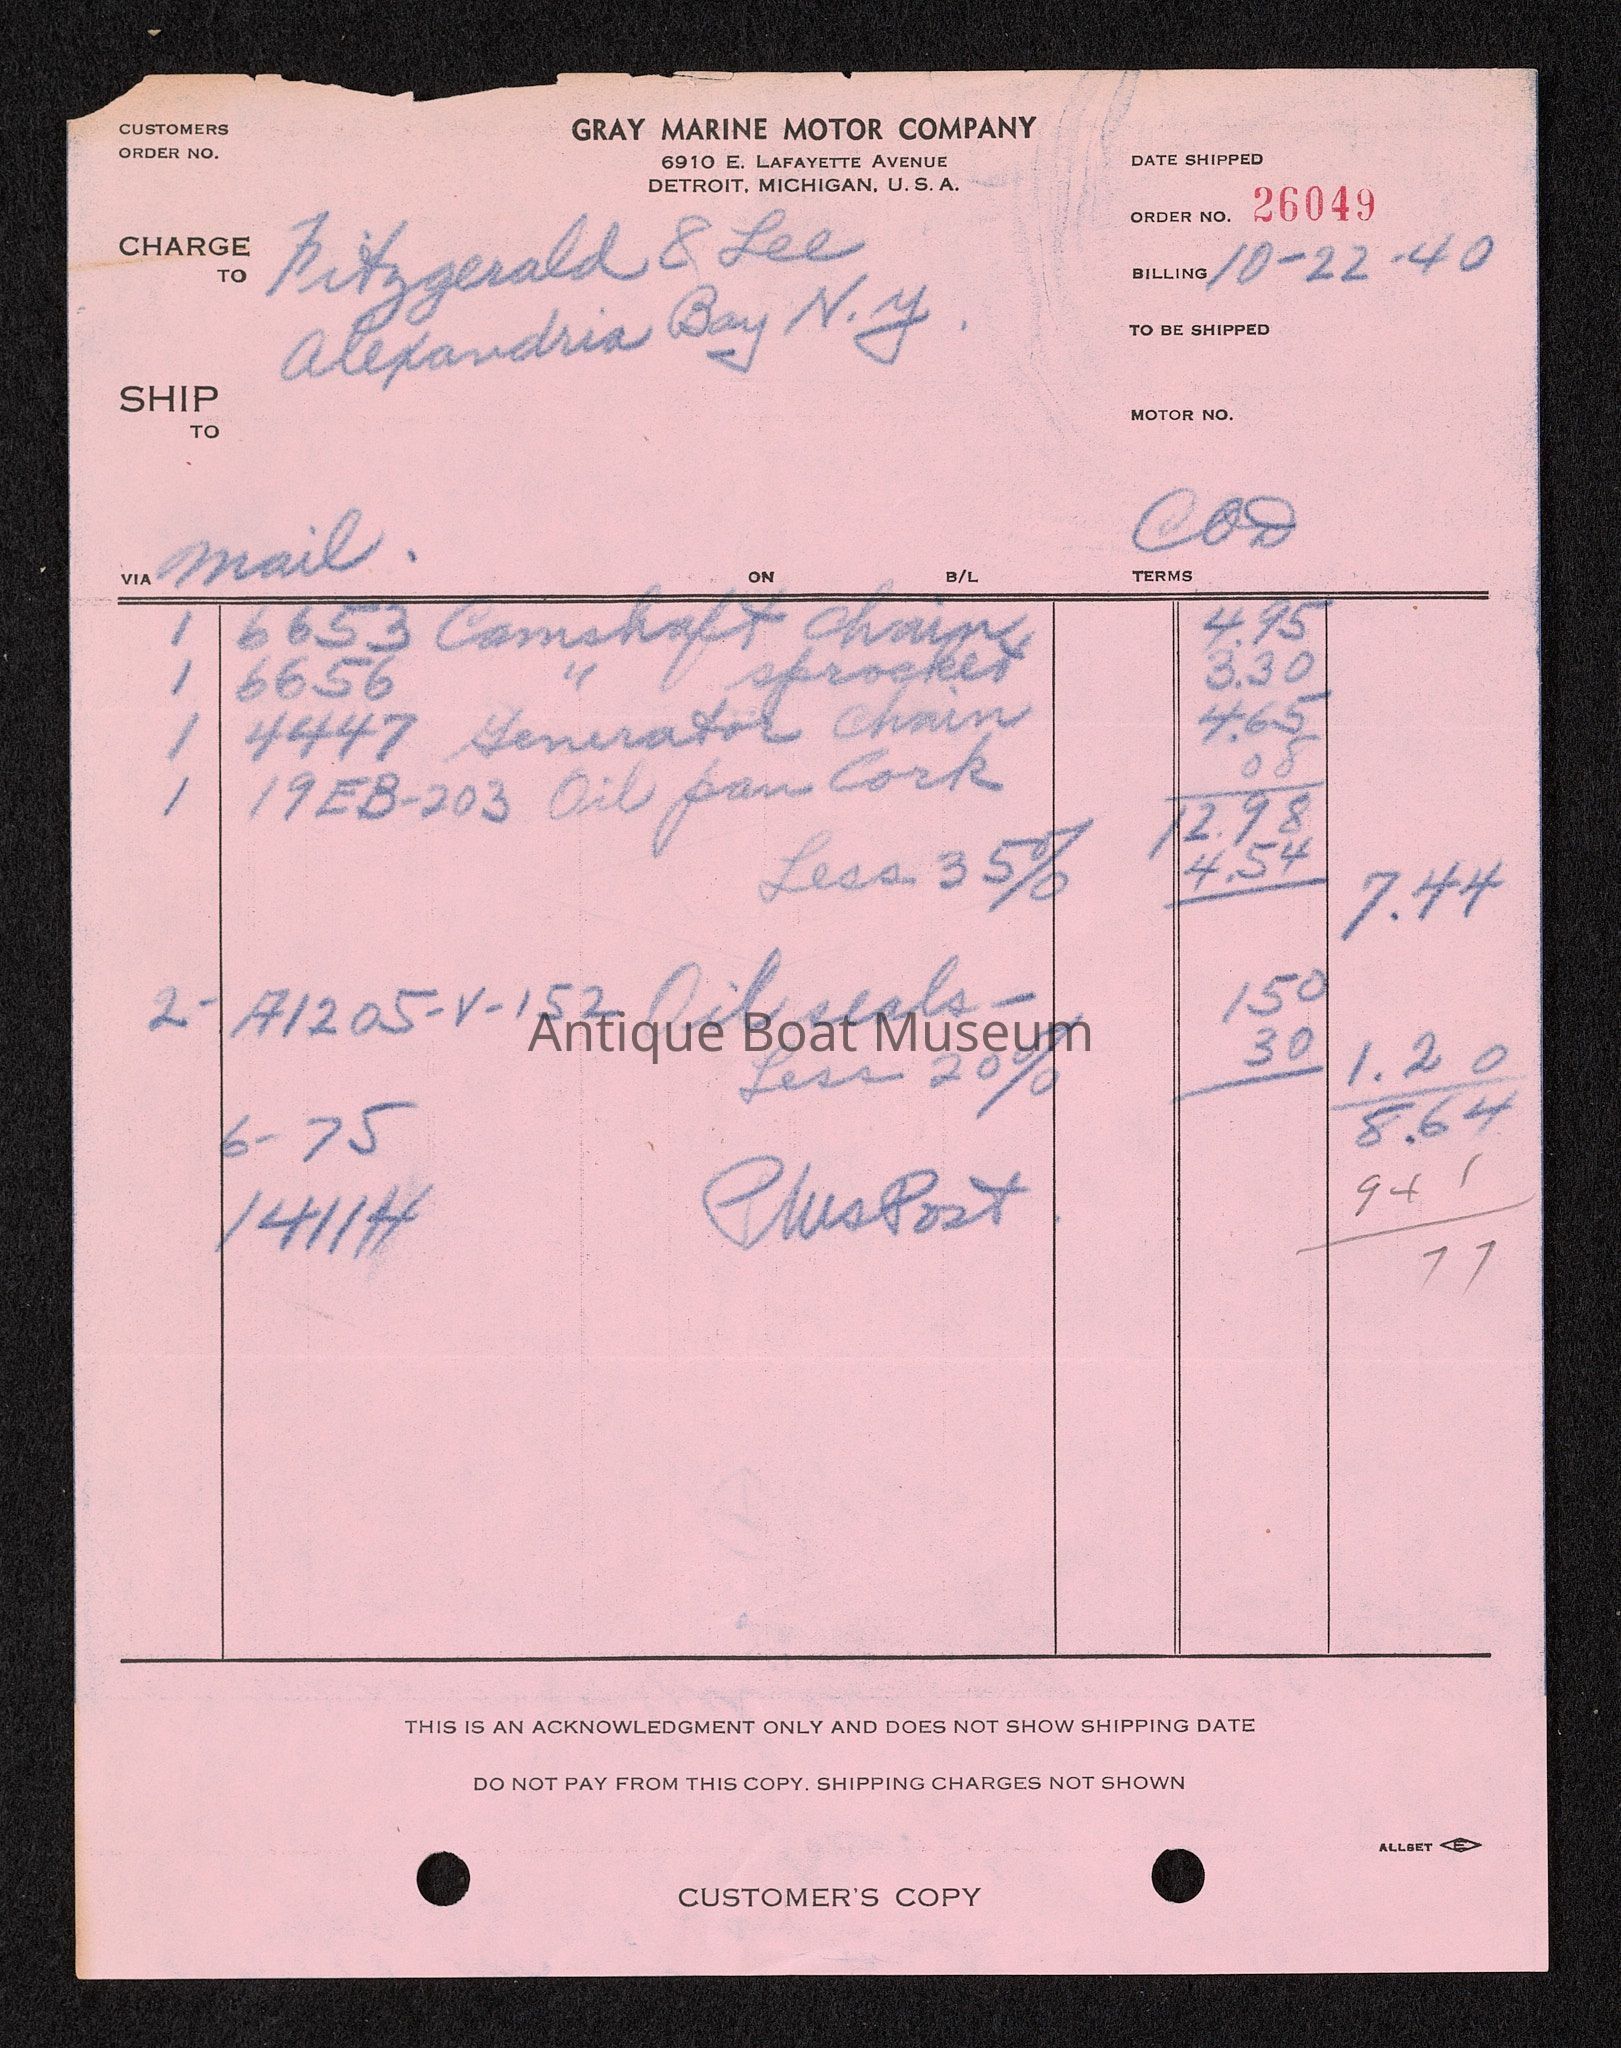 CUSTOMERS
ORDER NO.
GRAY MARINE MOTOR COMPANY
6910 E. LAFAYETTE AVENUE
DETROIT, MICHIGAN, U.S.A.
DATE SHIPPED
ORDER NO. 26049
CHARGE TO Fitzgerald & Lee
Alexandria Bay N.Y.
BILLING 10-22-40
TO BE SHIPPED
SHIP TO
MOTOR NO.
VIA Mail. ON B/L TERMS COD
1 6653 Camshaft Chain 4.95
1 6656 " sprocket 3.30
1 4447 Generator Chain 4.65
1 19EB-203 Oil pan Cork 08
12.98
Less 35% 4.54 7.44
2- A1205-V-152 Oil seals- 150
Less 20% 30 1.20
8.64
6-75
1411H Plus Post.
941
77
Antique Boat Museum
THIS IS AN ACKNOWLEDGMENT ONLY AND DOES NOT SHOW SHIPPING DATE
DO NOT PAY FROM THIS COPY. SHIPPING CHARGES NOT SHOWN
ALLSET E
CUSTOMER'S COPY